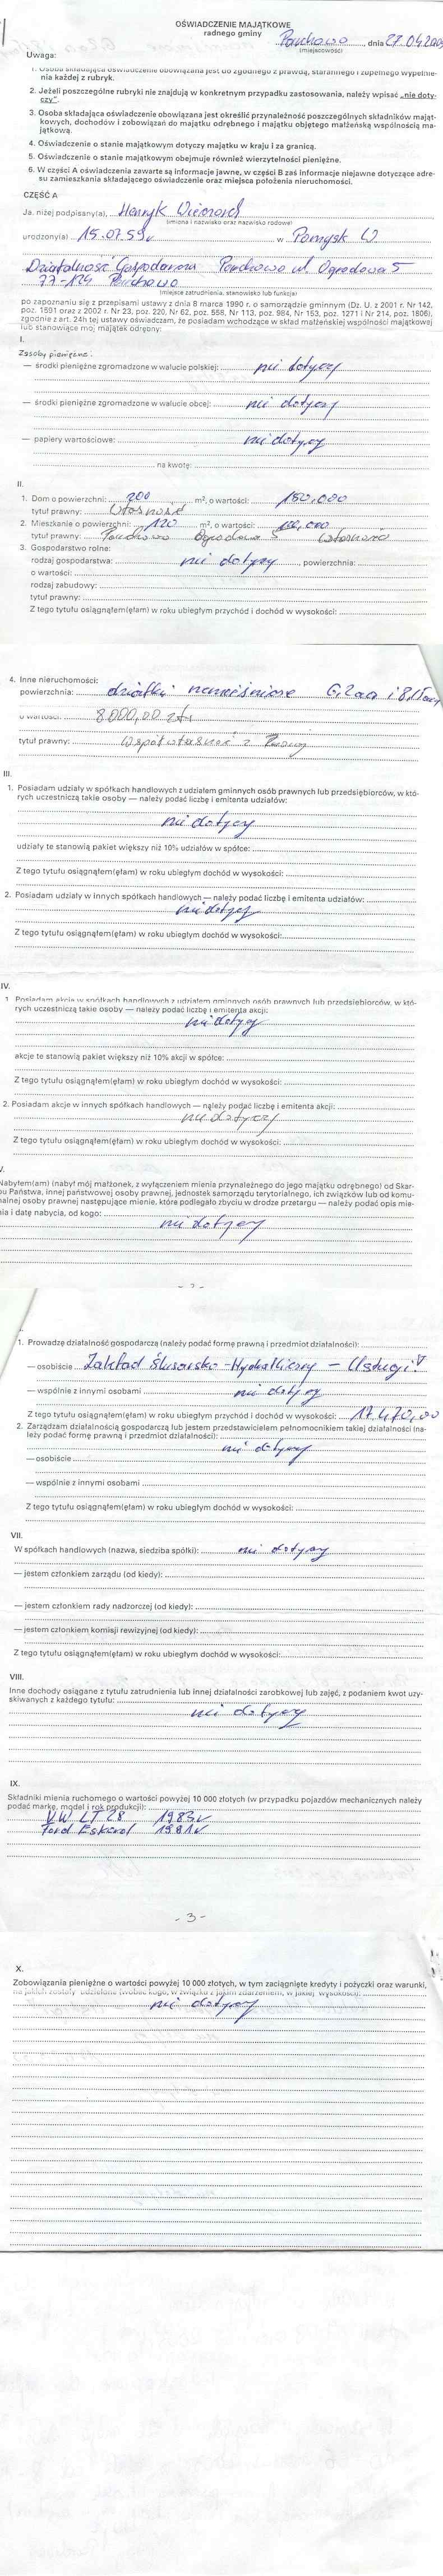 OŚWIADCZENIE MAJĄTKOWE
radnego gminy
Parchowo, dnia 27.04.200
(miejscowość)
Uwaga:
1. Osoba składająca oświadczenie obowiązana jest do zgodnego z prawdą, starannego i zupełnego wypełnie-
nia każdej z rubryk.
2. Jeżeli poszczególne rubryki nie znajdują w konkretnym przypadku zastosowania, należy wpisać „nie doty-
czy”.
3. Osoba składająca oświadczenie obowiązana jest określić przynależność poszczególnych składników mająt-
kowych, dochodów i zobowiązań do majątku odrębnego i majątku objętego małżeńską wspólnością ma-
jątkową.
4. Oświadczenie o stanie majątkowym dotyczy majątku w kraju i za granicą.
5. Oświadczenie o stanie majątkowym obejmuje również wierzytelności pieniężne.
6. W części A oświadczenia zawarte są informacje jawne, w części B zaś informacje niejawne dotyczące adre-
su zamieszkania składającego oświadczenie oraz miejsca położenia nieruchomości.
CZĘŚĆ A
Ja, niżej podpisany(a), Henryk
(imiona i nazwisko oraz nazwisko rodowe)
urodzony(a) 15.07.59r w Pomysk W
Działalność Gospodarcza Parchowo ul. Ogrodowa 5
77-124 Parchowo
(miejsce zatrudnienia, stanowisko lub funkcja)
po zapoznaniu się z przepisami ustawy z dnia 8 marca 1990 r. o samorządzie gminnym (Dz. U. z 2001 r. Nr 142,
poz. 1591 oraz z 2002 r. Nr 23, poz. 220, Nr 62, poz. 558, Nr 113, poz. 984, Nr 153, poz. 1271 i Nr 214, poz. 1806),
zgodnie z art. 24h tej ustawy oświadczam, że posiadam wchodzące w skład małżeńskiej wspólności majątkowej
lub stanowiące mój majątek odrębny:
I.
Zasoby pieniężne:
— środki pieniężne zgromadzone w walucie polskiej: nie dotyczy
— środki pieniężne zgromadzone w walucie obcej: nie dotyczy
— papiery wartościowe: nie dotyczy
na kwotę:
II.
1. Dom o powierzchni: 200 m², o wartości: 150,000
tytuł prawny: Własność
2. Mieszkanie o powierzchni: 120 m², o wartości:
tytuł prawny: Parchowo Ogrodowa 5 Własność
3. Gospodarstwo rolne:
rodzaj gospodarstwa: nie dotyczy, powierzchnia:
o wartości:
rodzaj zabudowy:
tytuł prawny:
Z tego tytułu osiągnąłem(ęłam) w roku ubiegłym przychód i dochód w wysokości:
4. Inne nieruchomości:
powierzchnia: działki
o wartości: 8000,00 zł
tytuł prawny: Współwłasność z
III.
1. Posiadam udziały w spółkach handlowych z udziałem gminnych osób prawnych lub przedsiębiorców, w któ-
rych uczestniczą takie osoby — należy podać liczbę i emitenta udziałów:
nie dotyczy
udziały te stanowią pakiet większy niż 10% udziałów w spółce:
Z tego tytułu osiągnąłem(ęłam) w roku ubiegłym dochód w wysokości:
2. Posiadam udziały w innych spółkach handlowych — należy podać liczbę i emitenta udziałów:
nie dotyczy
Z tego tytułu osiągnąłem(ęłam) w roku ubiegłym dochód w wysokości:
IV.
1. Posiadam akcje w spółkach handlowych z udziałem gminnych osób prawnych lub przedsiębiorców, w któ-
rych uczestniczą takie osoby — należy podać liczbę i emitenta akcji:
nie dotyczy
akcje te stanowią pakiet większy niż 10% akcji w spółce:
Z tego tytułu osiągnąłem(ęłam) w roku ubiegłym dochód w wysokości:
2. Posiadam akcje w innych spółkach handlowych — należy podać liczbę i emitenta akcji:
nie dotyczy
Z tego tytułu osiągnąłem(ęłam) w roku ubiegłym dochód w wysokości:
V.
Nabyłem(am) (nabył mój małżonek, z wyłączeniem mienia przynależnego do jego majątku odrębnego) od Skar-
bu Państwa, innej państwowej osoby prawnej, jednostek samorządu terytorialnego, ich związków lub od komu-
nalnej osoby prawnej następujące mienie, które podlegało zbyciu w drodze przetargu — należy podać opis mie-
nia i datę nabycia, od kogo:
nie dotyczy
- 2 -
1. Prowadzę działalność gospodarczą (należy podać formę prawną i przedmiot działalności):
— osobiście Zakład Ślusarsko-Hydrauliczny — Usługi
— wspólnie z innymi osobami nie dotyczy
Z tego tytułu osiągnąłem(ęłam) w roku ubiegłym przychód i dochód w wysokości: 17.470,00
2. Zarządzam działalnością gospodarczą lub jestem przedstawicielem pełnomocnikiem takiej działalności (na-
leży podać formę prawną i przedmiot działalności):
nie dotyczy
— osobiście
— wspólnie z innymi osobami
Z tego tytułu osiągnąłem(ęłam) w roku ubiegłym dochód w wysokości:
VII.
W spółkach handlowych (nazwa, siedziba spółki): nie dotyczy
— jestem członkiem zarządu (od kiedy):
— jestem członkiem rady nadzorczej (od kiedy):
— jestem członkiem komisji rewizyjnej (od kiedy):
Z tego tytułu osiągnąłem(ęłam) w roku ubiegłym dochód w wysokości:
VIII.
Inne dochody osiągane z tytułu zatrudnienia lub innej działalności zarobkowej lub zajęć, z podaniem kwot uzy-
skiwanych z każdego tytułu:
nie dotyczy
IX.
Składniki mienia ruchomego o wartości powyżej 10 000 złotych (w przypadku pojazdów mechanicznych należy
podać markę, model i rok produkcji):
VW LT 28 1983r
Ford Eskord 1991r
- 3 -
X.
Zobowiązania pieniężne o wartości powyżej 10 000 złotych, w tym zaciągnięte kredyty i pożyczki oraz warunki,
na jakich zostały udzielone (wobec kogo, w związku z jakim zdarzeniem, w jakiej wysokości):
nie dotyczy